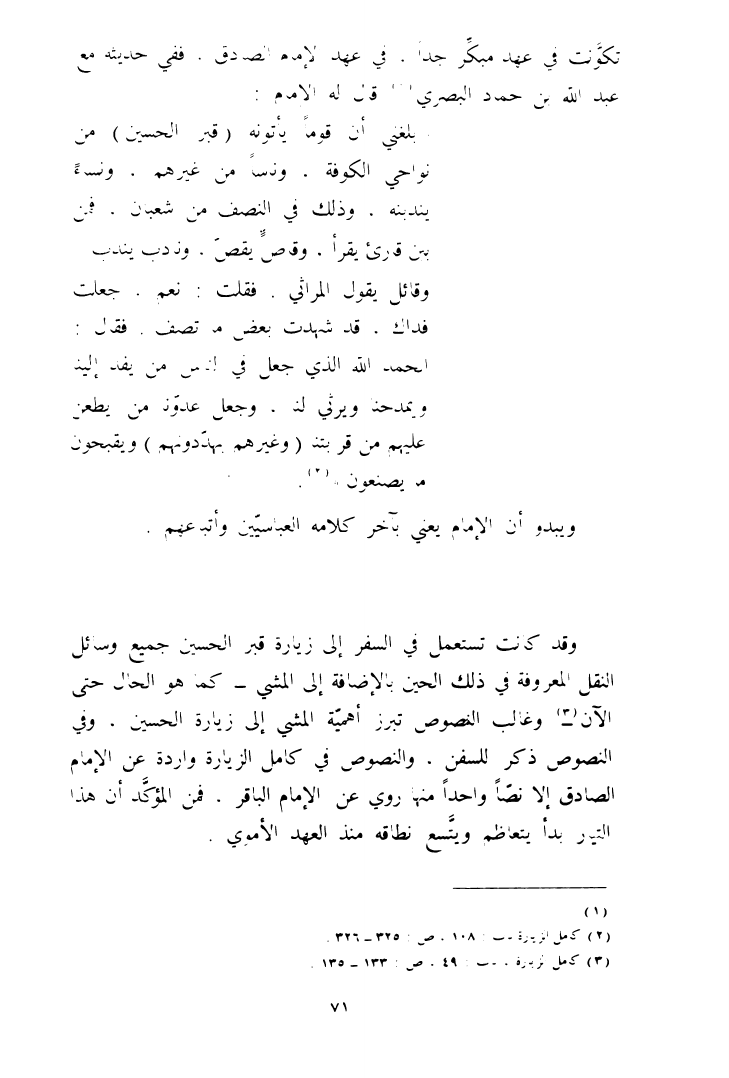 تكوَّنت في عهد مبكِّر جداً . في عهد الإمام الصادق . ففي حديثه مع
عبد الله بن حماد البصري(١) قال له الإمام :
« بلغني أن قوماً يأتونه ( قبر الحسين ) من
نواحي الكوفة . وناساً من غيرهم . ونساءً
يندبنه . وذلك في النصف من شعبان . فمن
بين قارئ يقرأ . وقاصٍّ يقصّ . ونادب يندب
وقائل يقول المراثي . فقلت : نعم . جعلت
فداك . قد شهدت بعض ما تصف . فقال :
الحمد الله الذي جعل في الناس من يفد إلينا
ويمدحنا ويرثي لنا . وجعل عدوّنا من يطعن
عليهم من قرابتنا ( وغيرهم يهدّدونهم ) ويقبحون
ما يصنعون »(٢) .
ويبدو أن الإمام يعني بآخر كلامه العباسيّين وأتباعهم .
وقد كانت تستعمل في السفر إلى زيارة قبر الحسين جميع وسائل
النقل المعروفة في ذلك الحين بالإضافة إلى المشي ــ كما هو الحال حتى
الآن ــ(٣) وغالب النصوص تبرز أهميّة المشي إلى زيارة الحسين . وفي
النصوص ذكر للسفن . والنصوص في كامل الزيارة واردة عن الإمام
الصادق إلا نصّاً واحداً منها روي عن الإمام الباقر . فمن المؤكَّد أن هذا
التيار بدأ يتعاظم ويتَّسع نطاقه منذ العهد الأموي .
(١)
(٢) كامل الزيارة ـ ب : ١٠٨ ، ص : ٣٢٥ ــ ٣٢٦ .
(٣) كامل الزيارة ، ـ ب : ٤٩ ، ص : ١٣٣ ــ ١٣٥ .
٧١